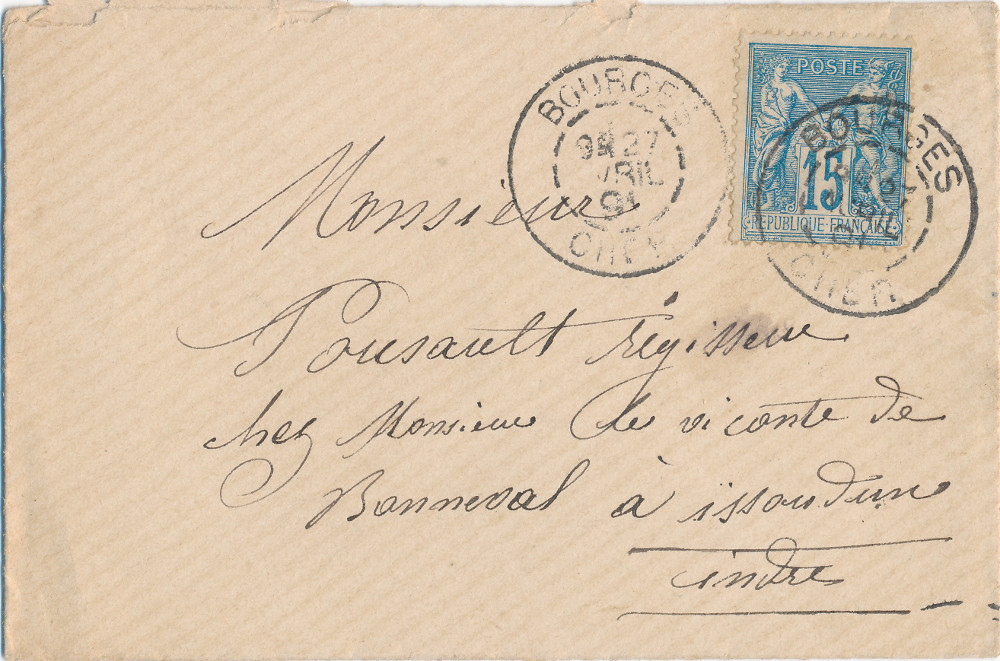 BOURGES
27
AVRIL
91
CHER
POSTE
15
REPUBLIQUE FRANCAISE
BOURGES
CHER
Monsieur
Pousault régisseur
chez Monsieur le viconte de
Bonneval à issoudun
indre